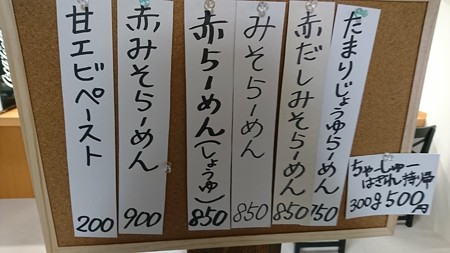 たまりじょうゆらーめん 750
赤だしみそらーめん 850
みそらーめん 850
赤らーめん(しょうゆ) 850
赤みそらーめん 900
甘エビペースト 200
ちゃーしゅー
はぎれ 持帰
300g 500円